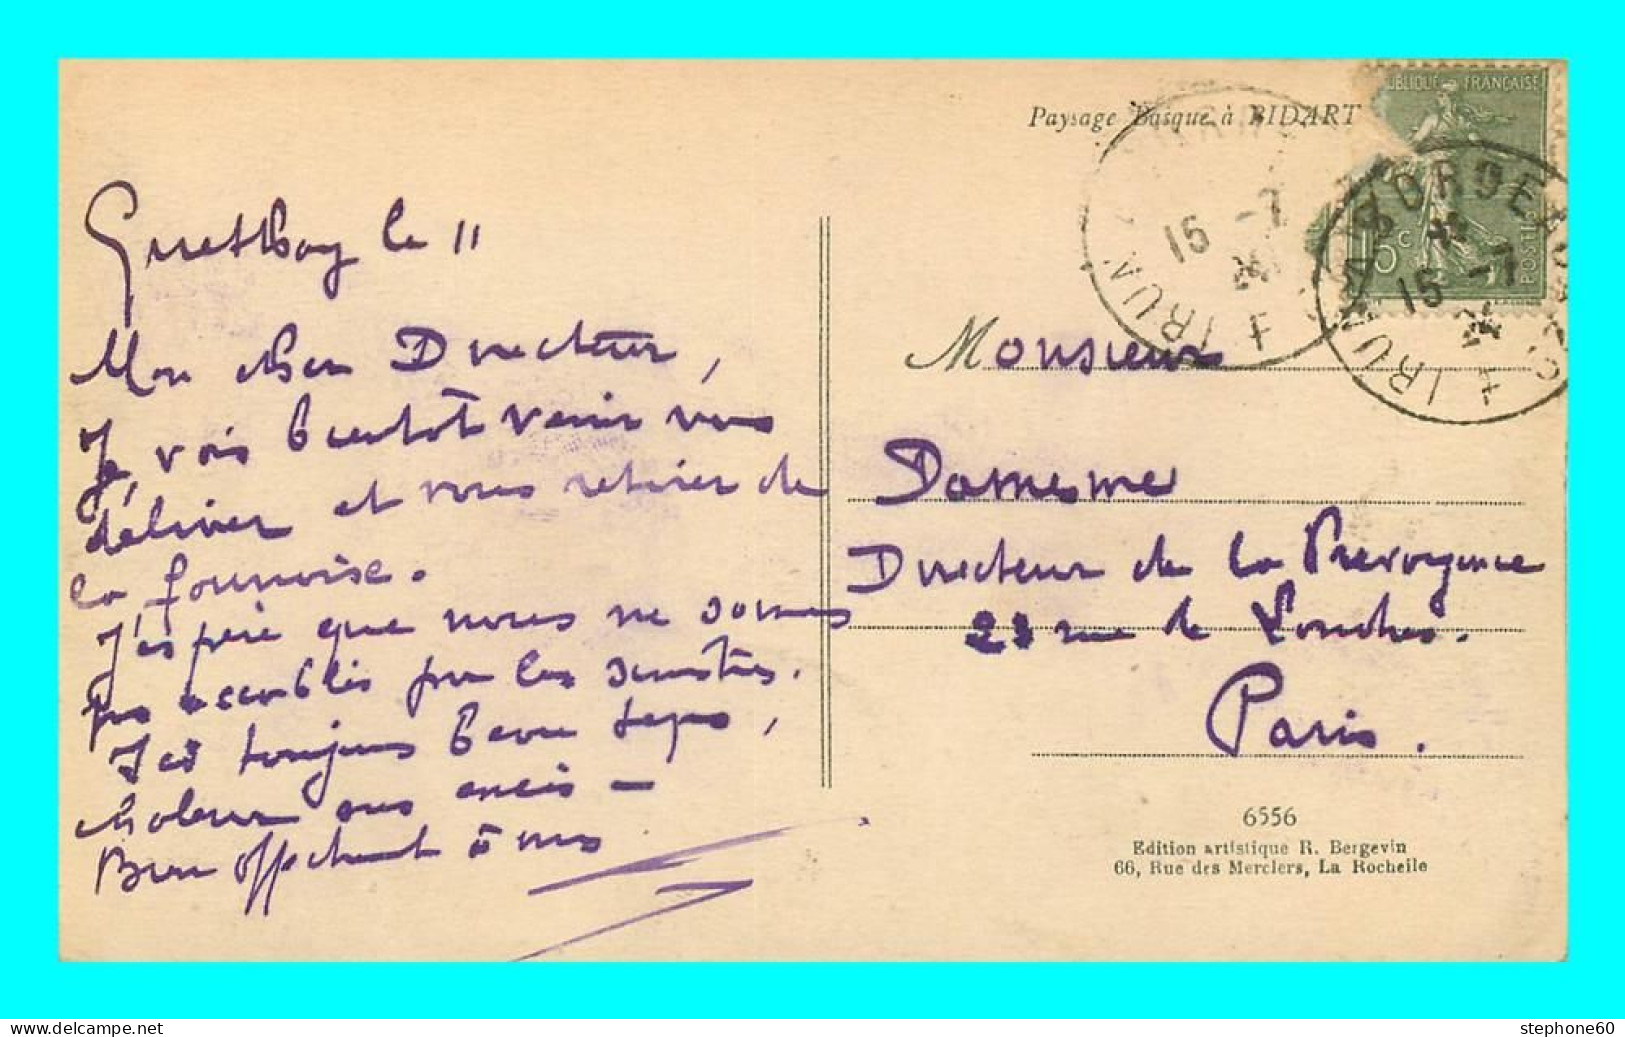 Paysage Basque à BIDART
RÉPUBLIQUE FRANÇAISE
15c
POSTES
BORDEAUX
IRUN A
15 -7
24
IRUN
15 -7
24
Guethary le 11
Mon cher Directeur,
Je vais bientôt venir vous
délivrer et vous retirer de
la fournaise.
J'espère que nous ne sommes
pas accablés par les sinistres.
Ici toujours beau temps,
chaleur sans excès –
Bien affectueusement à vous
Monsieur
Damesme
Directeur de la Prévoyance
23 rue de Londres.
Paris.
6556
Edition artistique R. Bergevin
66, Rue des Merciers, La Rochelle
www.delcampe.net
stephone60